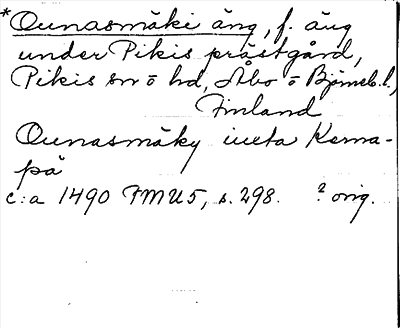 *Ounasmäki äng, f. äng
under Pikis prästgård,
Pikis sn o hd, Åbo o Björneb. l.,
Finland
Ounasmäky iuxta Kema-
pä
c:a 1490 FMU 5, s. 298. ? orig.